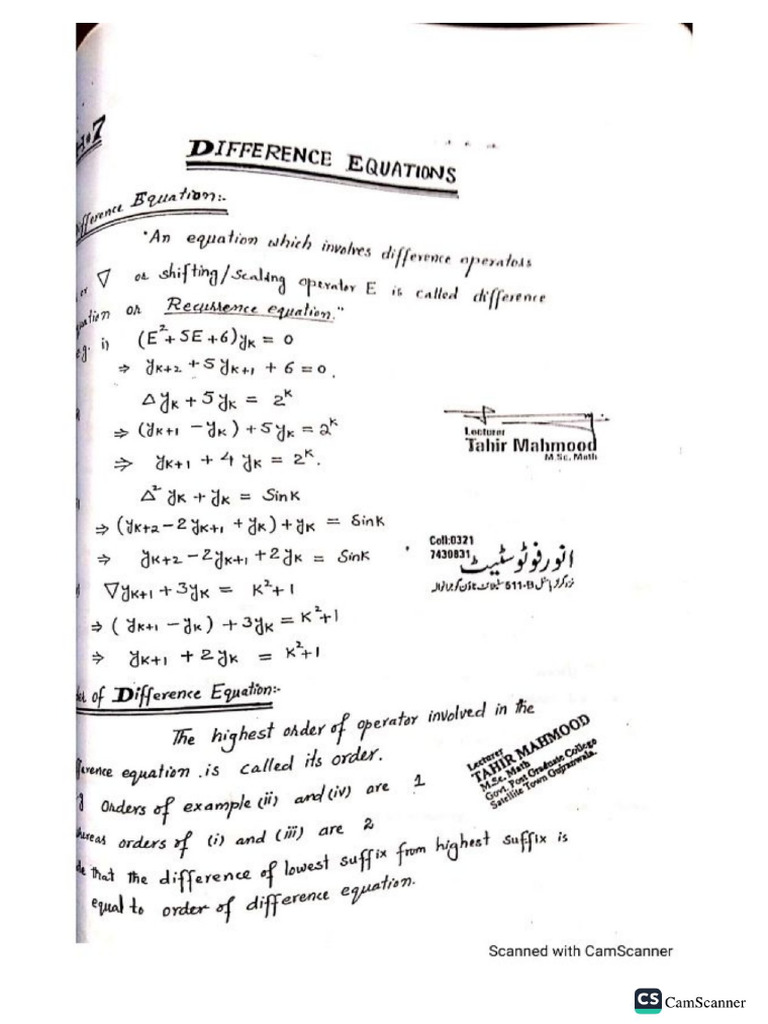 .7
DIFFERENCE EQUATIONS
ifference Equation:-
"An equation which involves difference operators
or ∇ or shifting/scaling operator E is called difference
uation or Recurrence equation."
e.g. i) (E²+5E+6)yₖ = 0
⇒ yₖ₊₂ + 5yₖ₊₁ + 6 = 0.
Δyₖ + 5yₖ = 2ᵏ
⇒ (yₖ₊₁ - yₖ) + 5yₖ = 2ᵏ
⇒ yₖ₊₁ + 4yₖ = 2ᵏ.
Lecturer
Tahir Mahmood
M.Sc. Math
Δ²yₖ + yₖ = Sink
⇒ (yₖ₊₂ - 2yₖ₊₁ + yₖ) + yₖ = Sink
⇒ yₖ₊₂ - 2yₖ₊₁ + 2yₖ = Sink
Cell:0321
7430831
انور فوٹو سٹیٹ
511-B
∇yₖ₊₁ + 3yₖ = K²+1
⇒ (yₖ₊₁ - yₖ) + 3yₖ = K²+1
⇒ yₖ₊₁ + 2yₖ = K²+1
of Difference Equation:-
The highest order of operator involved in the
ference equation is called its order.
Orders of example (ii) and (iv) are 1
hereas orders of (i) and (iii) are 2
that the difference of lowest suffix from highest suffix is
equal to order of difference equation.
Lecturer
TAHIR MAHMOOD
M.Sc. Math
Govt. Post Graduate College
Satellite Town Gujranwala.
Scanned with CamScanner
CS CamScanner